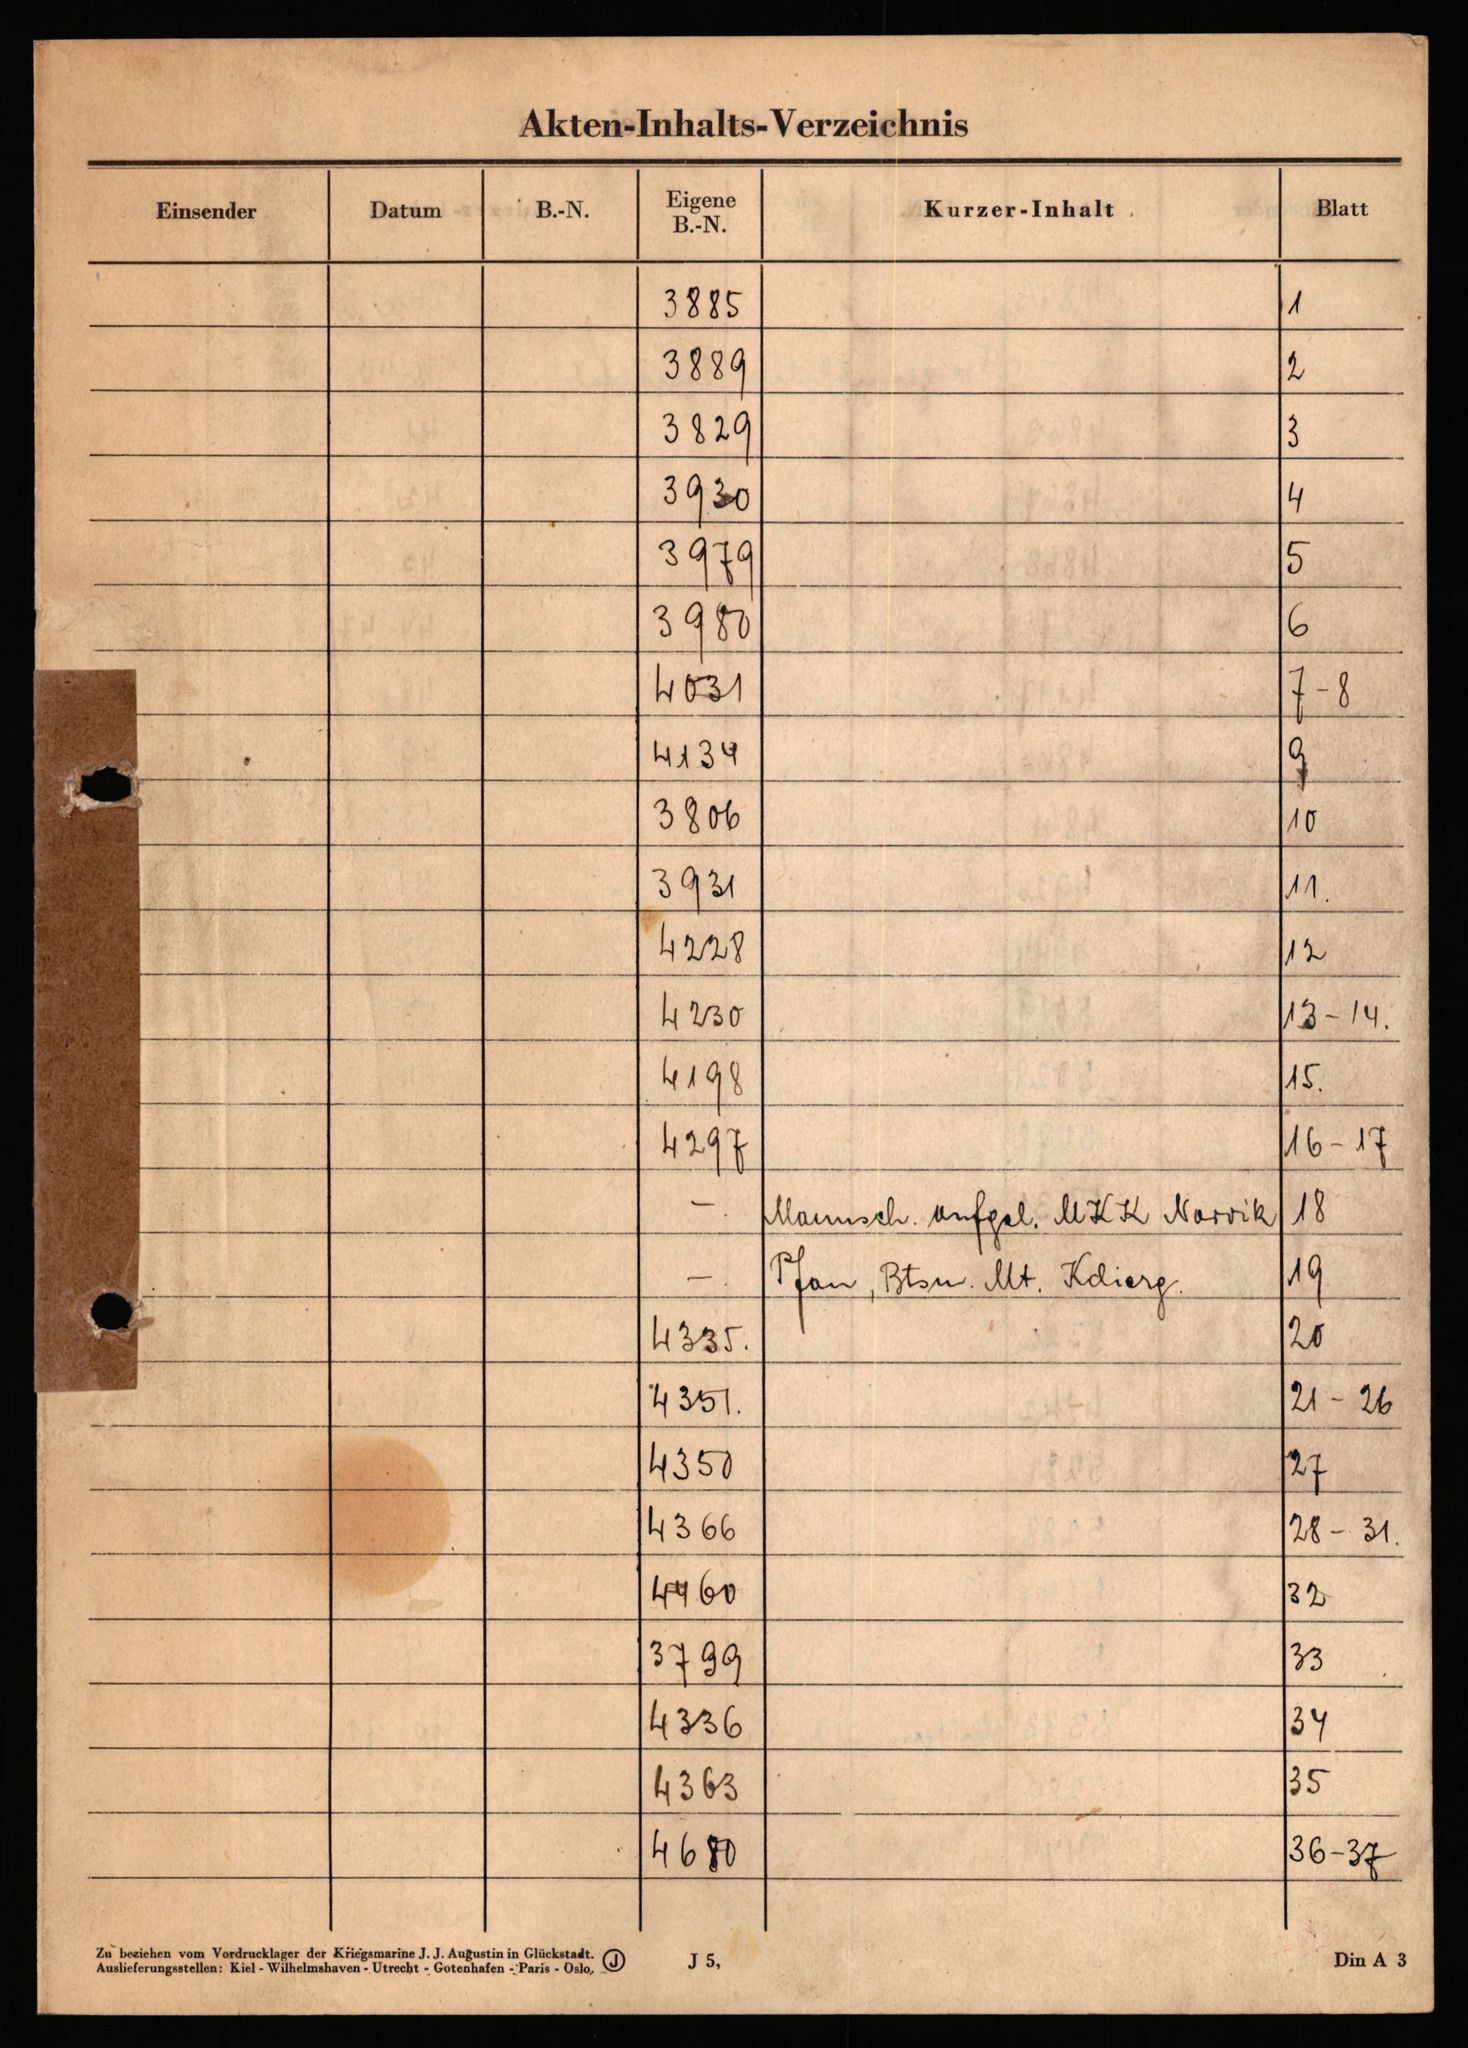 Akten-Inhalts-Verzeichnis
Einsender Datum B.-N. Eigene B.-N. Kurzer-Inhalt Blatt
3885 1
3889 2
3829 3
3930 4
3979 5
3980 6
4031 7-8
4134 9
3806 10
3931 11.
4228 12
4230 13-14.
4198 15.
4297 16-17
- Mannsch. aufgel. MKK Narvik 18
- Pfau, Btsn. Mt. 19
4335. 20
4351. 21-26
4350 27
4366 28-31.
4460 32
3799 33
4336 34
4363 35
4680 36-37
Zu beziehen vom Vordrucklager der Kriegsmarine J. J. Augustin in Glückstadt.
Auslieferungsstellen: Kiel - Wilhelmshaven - Utrecht - Gotenhafen - Paris - Oslo. J J 5, Din A 3